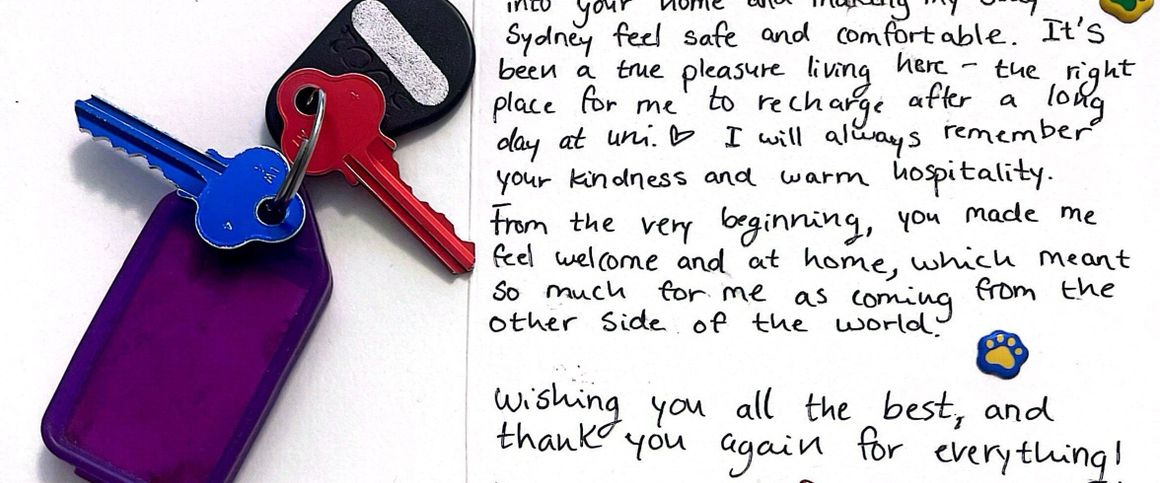 into your home and making my stay
Sydney feel safe and comfortable. It's
been a true pleasure living here - the right
place for me to recharge after a long
day at uni. ♡ I will always remember
your kindness and warm hospitality.
From the very beginning, you made me
feel welcome and at home, which meant
so much for me as coming from the
other side of the world.
Wishing you all the best, and
thank you again for everything!